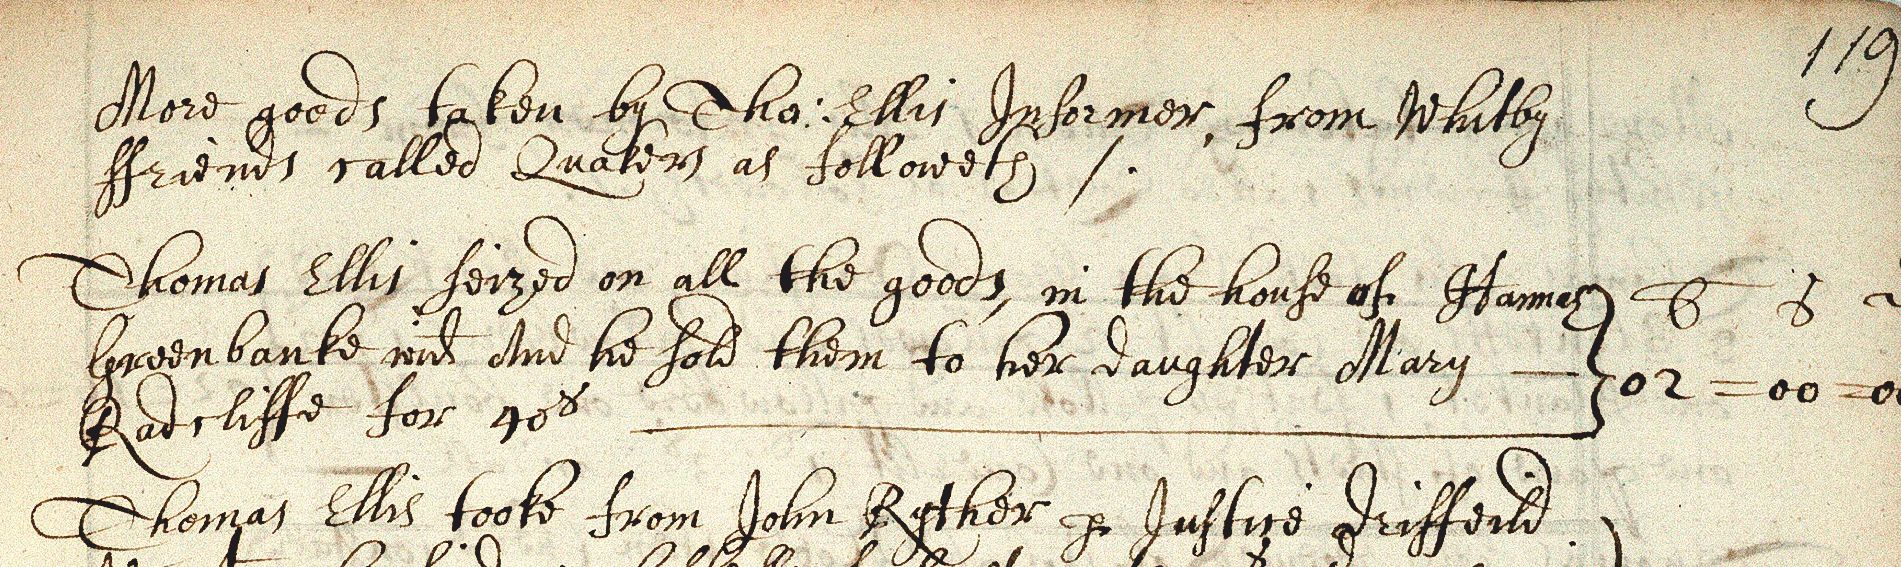 119
More goods taken by Tho: Ellis Informer, from Whitby
ffriends called Quakers as followeth /.
Thomas Ellis seized on all the goods, in the house of Hannah
Greenbanke wid And he sold them to her daughter Mary —
Radcliffe for 40s
02 = 00 = 00
Thomas Ellis tooke from John Rother p Justice Driffeild